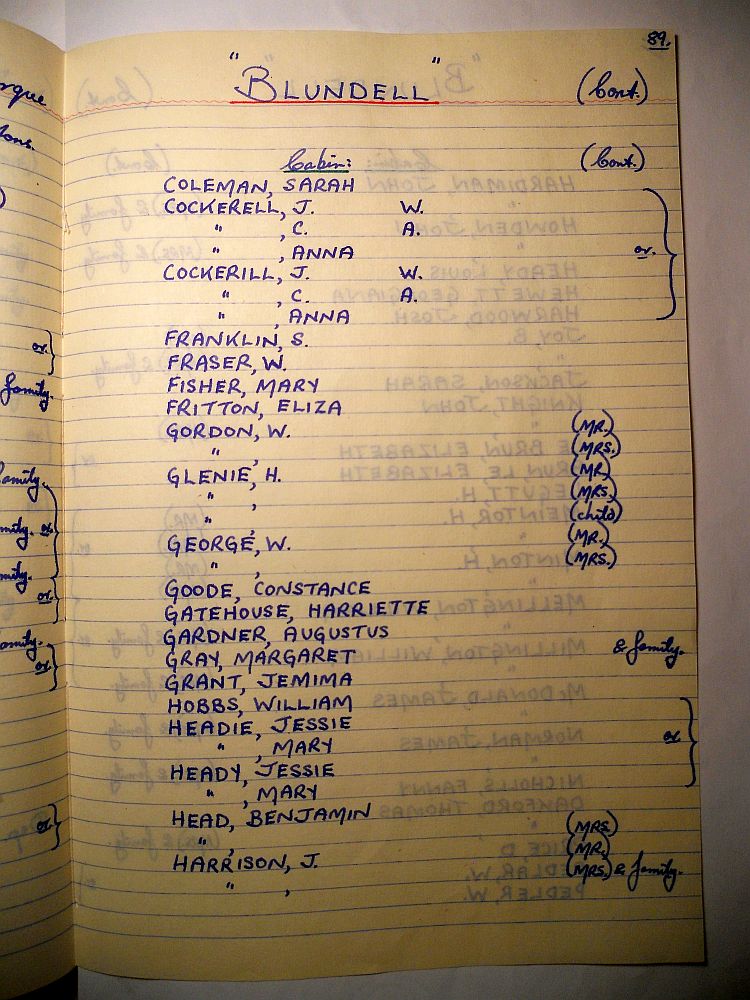 89.
"BLUNDELL" (Cont.)
Cabin: (Cont.)
COLEMAN, SARAH
COCKERELL, J. W.
" , C. A.
" , ANNA or.
COCKERILL, J. W.
" , C. A.
" , ANNA
FRANKLIN, S.
FRASER, W.
FISHER, MARY
FRITTON, ELIZA
GORDON, W. (MR.)
" , (MRS.)
GLENIE, H. (MR.)
" , (MRS.)
" , (child)
GEORGE, W. (MR.)
" , (MRS.)
GOODE, CONSTANCE
GATEHOUSE, HARRIETTE
GARDNER, AUGUSTUS
GRAY, MARGARET & family.
GRANT, JEMIMA
HOBBS, WILLIAM
HEADIE, JESSIE
" , MARY or
HEADY, JESSIE
" , MARY
HEAD, BENJAMIN
" , (MRS)
HARRISON, J. (MR.)
" , (MRS.) & family.
or.
family.
family.
or.
family.
or.
family.
or.
or.